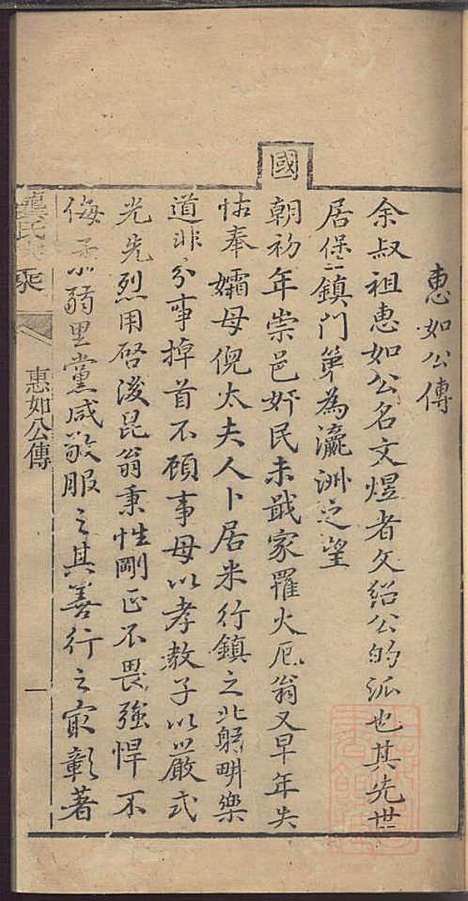 惠如公傳
余叔祖惠如公名文煜者文紹公的派也其先世
居保二鎮門第為瀛洲之望
國
朝初年崇邑奸民未戢家罹火厄翁又早年失
怙奉孀母倪太夫人卜居米行鎮之北躬畊樂
道非分事掉首不顧事母以孝教子以嚴式
光先烈用啓後昆翁秉性剛正不畏強悍不
侮孤弱里黨咸敬服之其善行之㝡彰著
氏 乘
惠如公傳
一